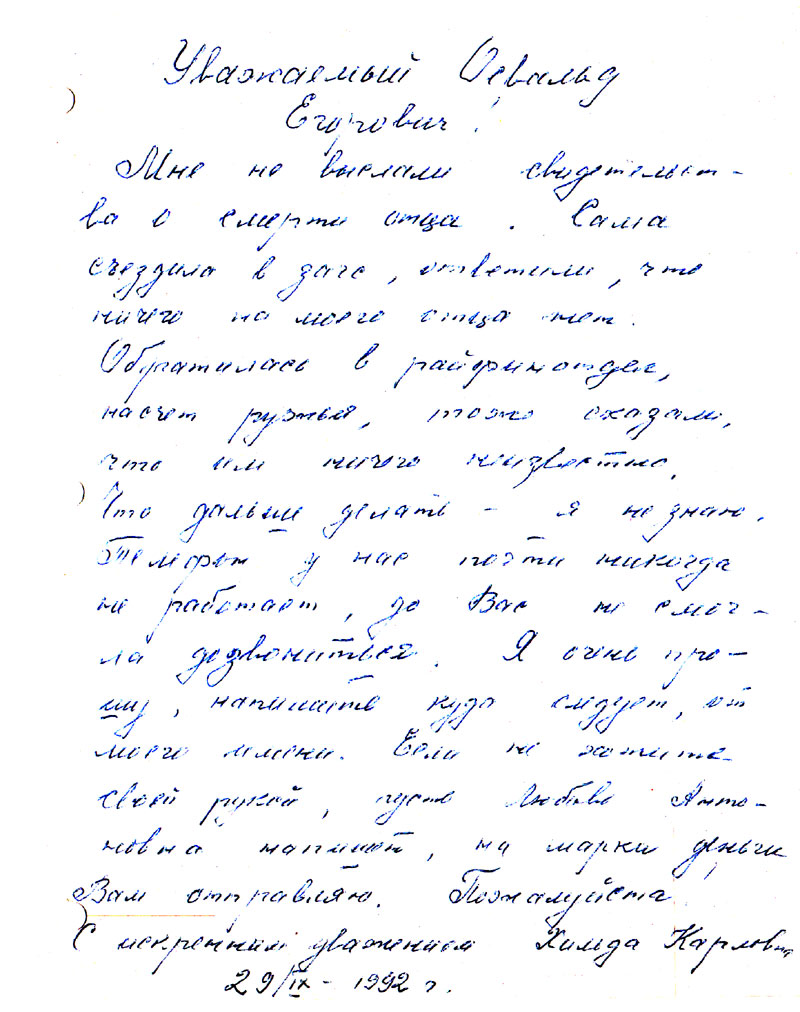 Уважаемый Освальд
Егорович!
Мне не выслали свидетельст-
ва о смерти отца. Сама
съездила в загс, ответили, что
ничего на моего отца нет.
Обратилась в райфинотдел,
насчет ружья, тоже сказали,
что им ничего неизвестно.
Что дальше делать - я не знаю.
Телефон у нас почти никогда
не работает, до Вас не смог-
ла дозвониться. Я очень про-
шу, напишите куда следует, от
моего имени. Если не хотите
своей рукой, пусть Любовь Анто-
новна напишет, на марки деньги
Вам отправляю. Пожалуйста
С искренним уважением Хильда Карловна
29/IX - 1992 г.